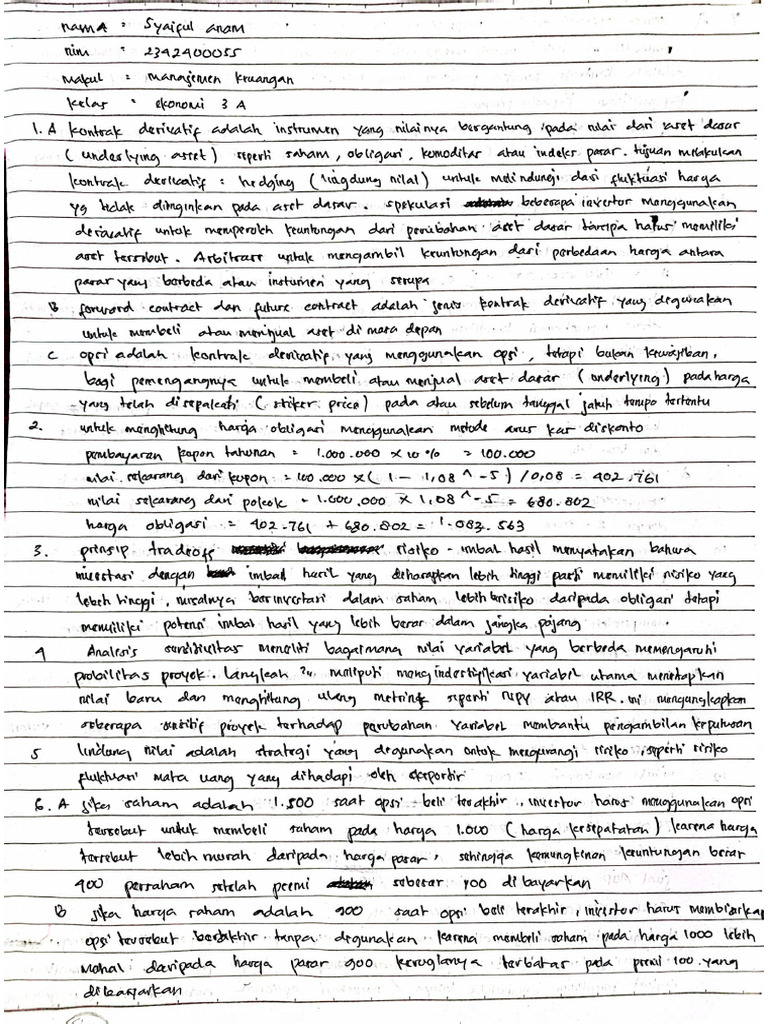 nama : Syaiful anam
nim : 2342400055
Makul : manajemen keuangan
kelas : ekonomi 3 A
1. A kontrak derivatif adalah instrumen yang nilainya bergantung pada nilai dari aset dasar
(underlying asset) seperti saham, obligasi, komoditas atau indeks pasar. tujuan melakukan
kontrak derivatif : hedging (lingdung nilai) untuk melindungi dari fluktuasi harga
yg tidak diinginkan pada aset dasar. spekulasi beberapa investor menggunakan
derivatif untuk memperoleh keuntungan dari perubahan aset dasar tanpa harus memiliki
aset tersebut. Arbitrase untuk mengambil keuntungan dari perbedaan harga antara
pasar yang berbeda atau instumen yang serupa
B forward contract dan future contract adalah jenis kontrak derivatif yang digunakan
untuk membeli atau menjual aset di masa depan
C opsi adalah kontrak derivatif yang menggunakan opsi, tetapi bukan kewajiban,
bagi pemengangnya untuk membeli atau menjual aset dasar (underlying) pada harga
yang telah disepakati (striker price) pada atau sebelum tanggal jatuh tempo tertentu
2. untuk menghitung harga obligasi menggunakan metode arus kas diskonto
pembayaran kopon tahunan = 1.000.000 x 10 % = 100.000
nilai sekarang dari kupon = 100.000 x ( 1 - 1,08 ^ -5 ) / 0,08 = 402.761
nilai sekarang dari pokok = 1.000.000 x 1,08 ^ -5 = 680.802
harga obligasi = 402.761 + 680.802 = 1.083.563
3. prinsip tradeoff risiko - imbal hasil menyatakan bahwa
investasi dengan imbal hasil yang diharapkan lebih tinggi pasti memiliki risiko yang
lebih tinggi, misalnya berinvestasi dalam saham lebih berisiko daripada obligasi tetapi
memiliki potensi imbal hasil yang lebih besar dalam jangka pajang
4 Analisis sensitivitas meneliti bagaimana nilai variabel yang berbeda memengaruhi
probilitas proyek. langkah 2n meliputi mengindestifikasi variabel utama menetapkan
nilai baru dan menghitung ulang metrik seperti NPV atau IRR. ini mengungkapkan
seberapa sensitif proyek terhadap perubahan variabel membantu pengambilan keputusan
5 lindung nilai adalah strategi yang digunakan untuk mengurangi risiko, seperti risiko
fluktuasi mata uang yang dihadapi oleh eksportir
6. A jika saham adalah 1.500 saat opsi beli terakhir, investor harus menggunakan opsi
tersebut untuk membeli saham pada harga 1.000 (harga kesepatatan) karena harga
tersebut lebih murah daripada harga pasar, sehingga kemungkinan keuntungan besar
400 persaham setelah premi sebesar 100 dibayarkan
B jika harga saham adalah 900 saat opsi beli terakhir, investor harus membiarkan
opsi tersebut berakhir tanpa digunakan karena membeli saham pada harga 1000 lebih
mahal daripada harga pasar 900 kerugianya terbatas pada premi 100 yang
dibayarkan